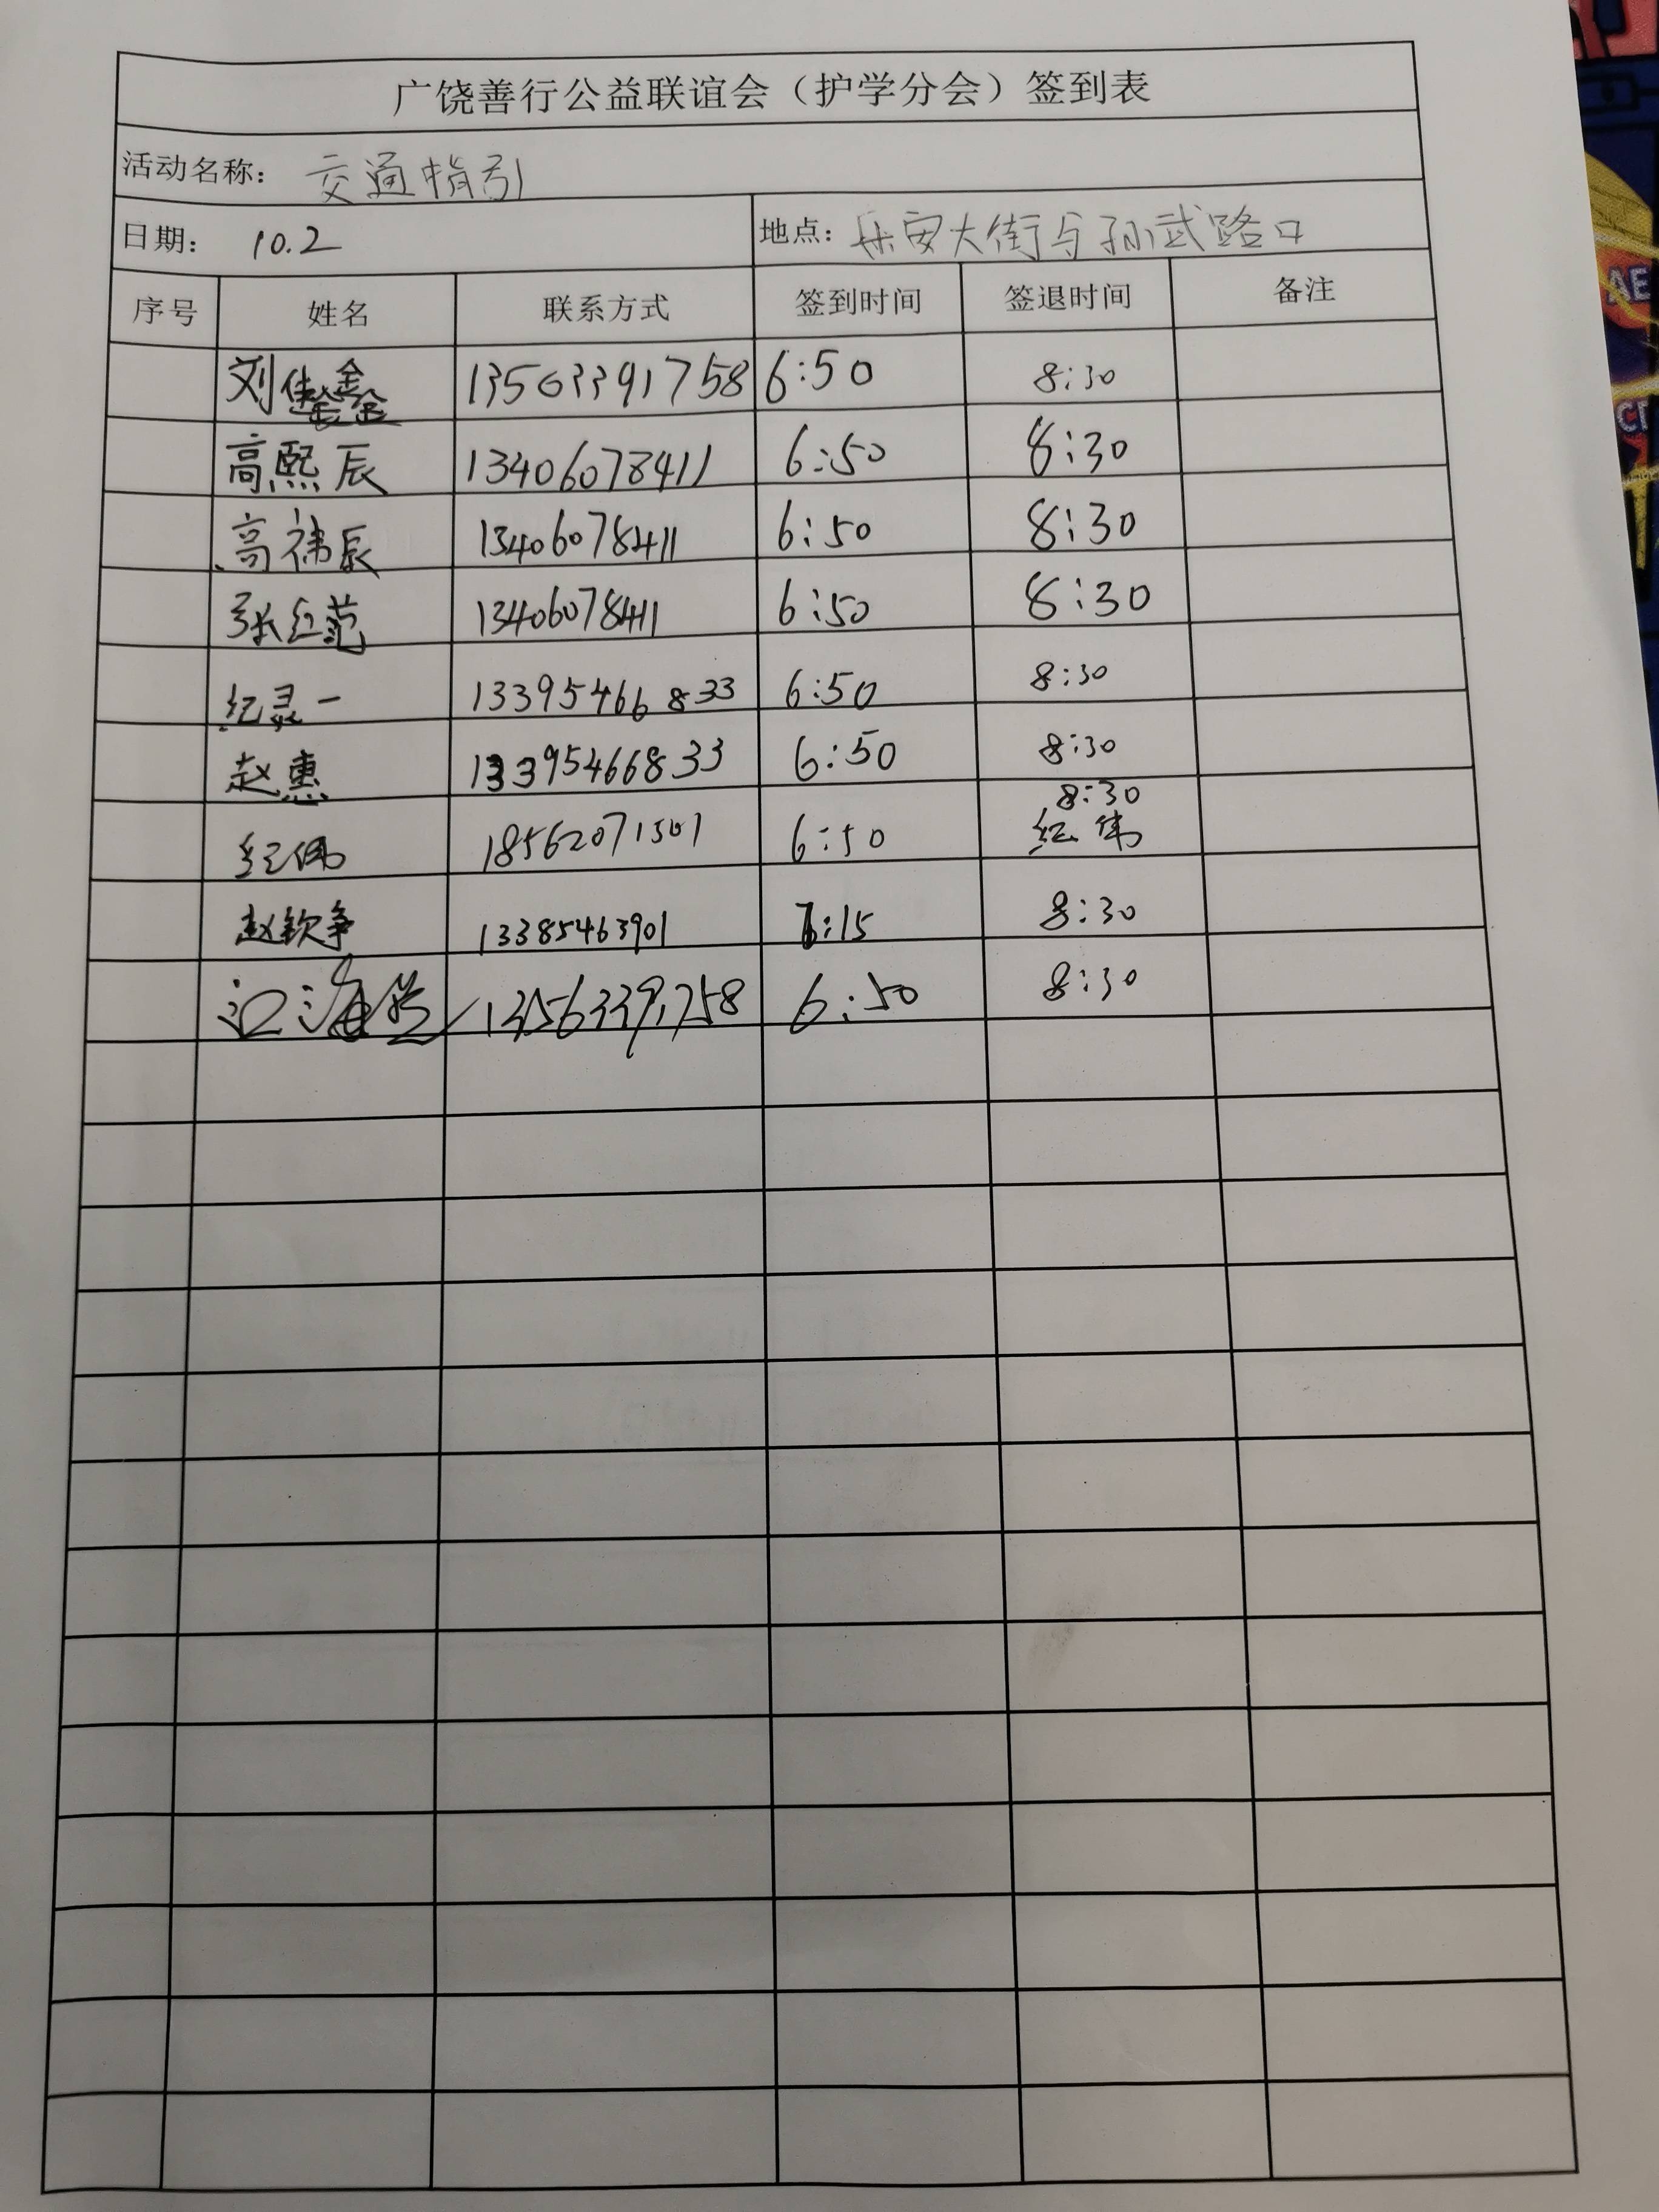 广饶善行公益联谊会（护学分会）签到表
活动名称： 交通指引
日期： 10.2 地点： 乐安大街与孙武路口
序号 姓名 联系方式 签到时间 签退时间 备注
刘佳鑫 13563391758 6:50 8:30
高熙辰 13406078411 6:50 8:30
高祎辰 13406078411 6:50 8:30
张红范 13406078411 6:50 8:30
纪录一 13395466833 6:50 8:30
赵惠 13395466833 6:50 8:30
纪伟 18562071501 6:50 8:30 纪伟
赵钦争 13385463901 7:15 8:30
13563391758 6:50 8:30